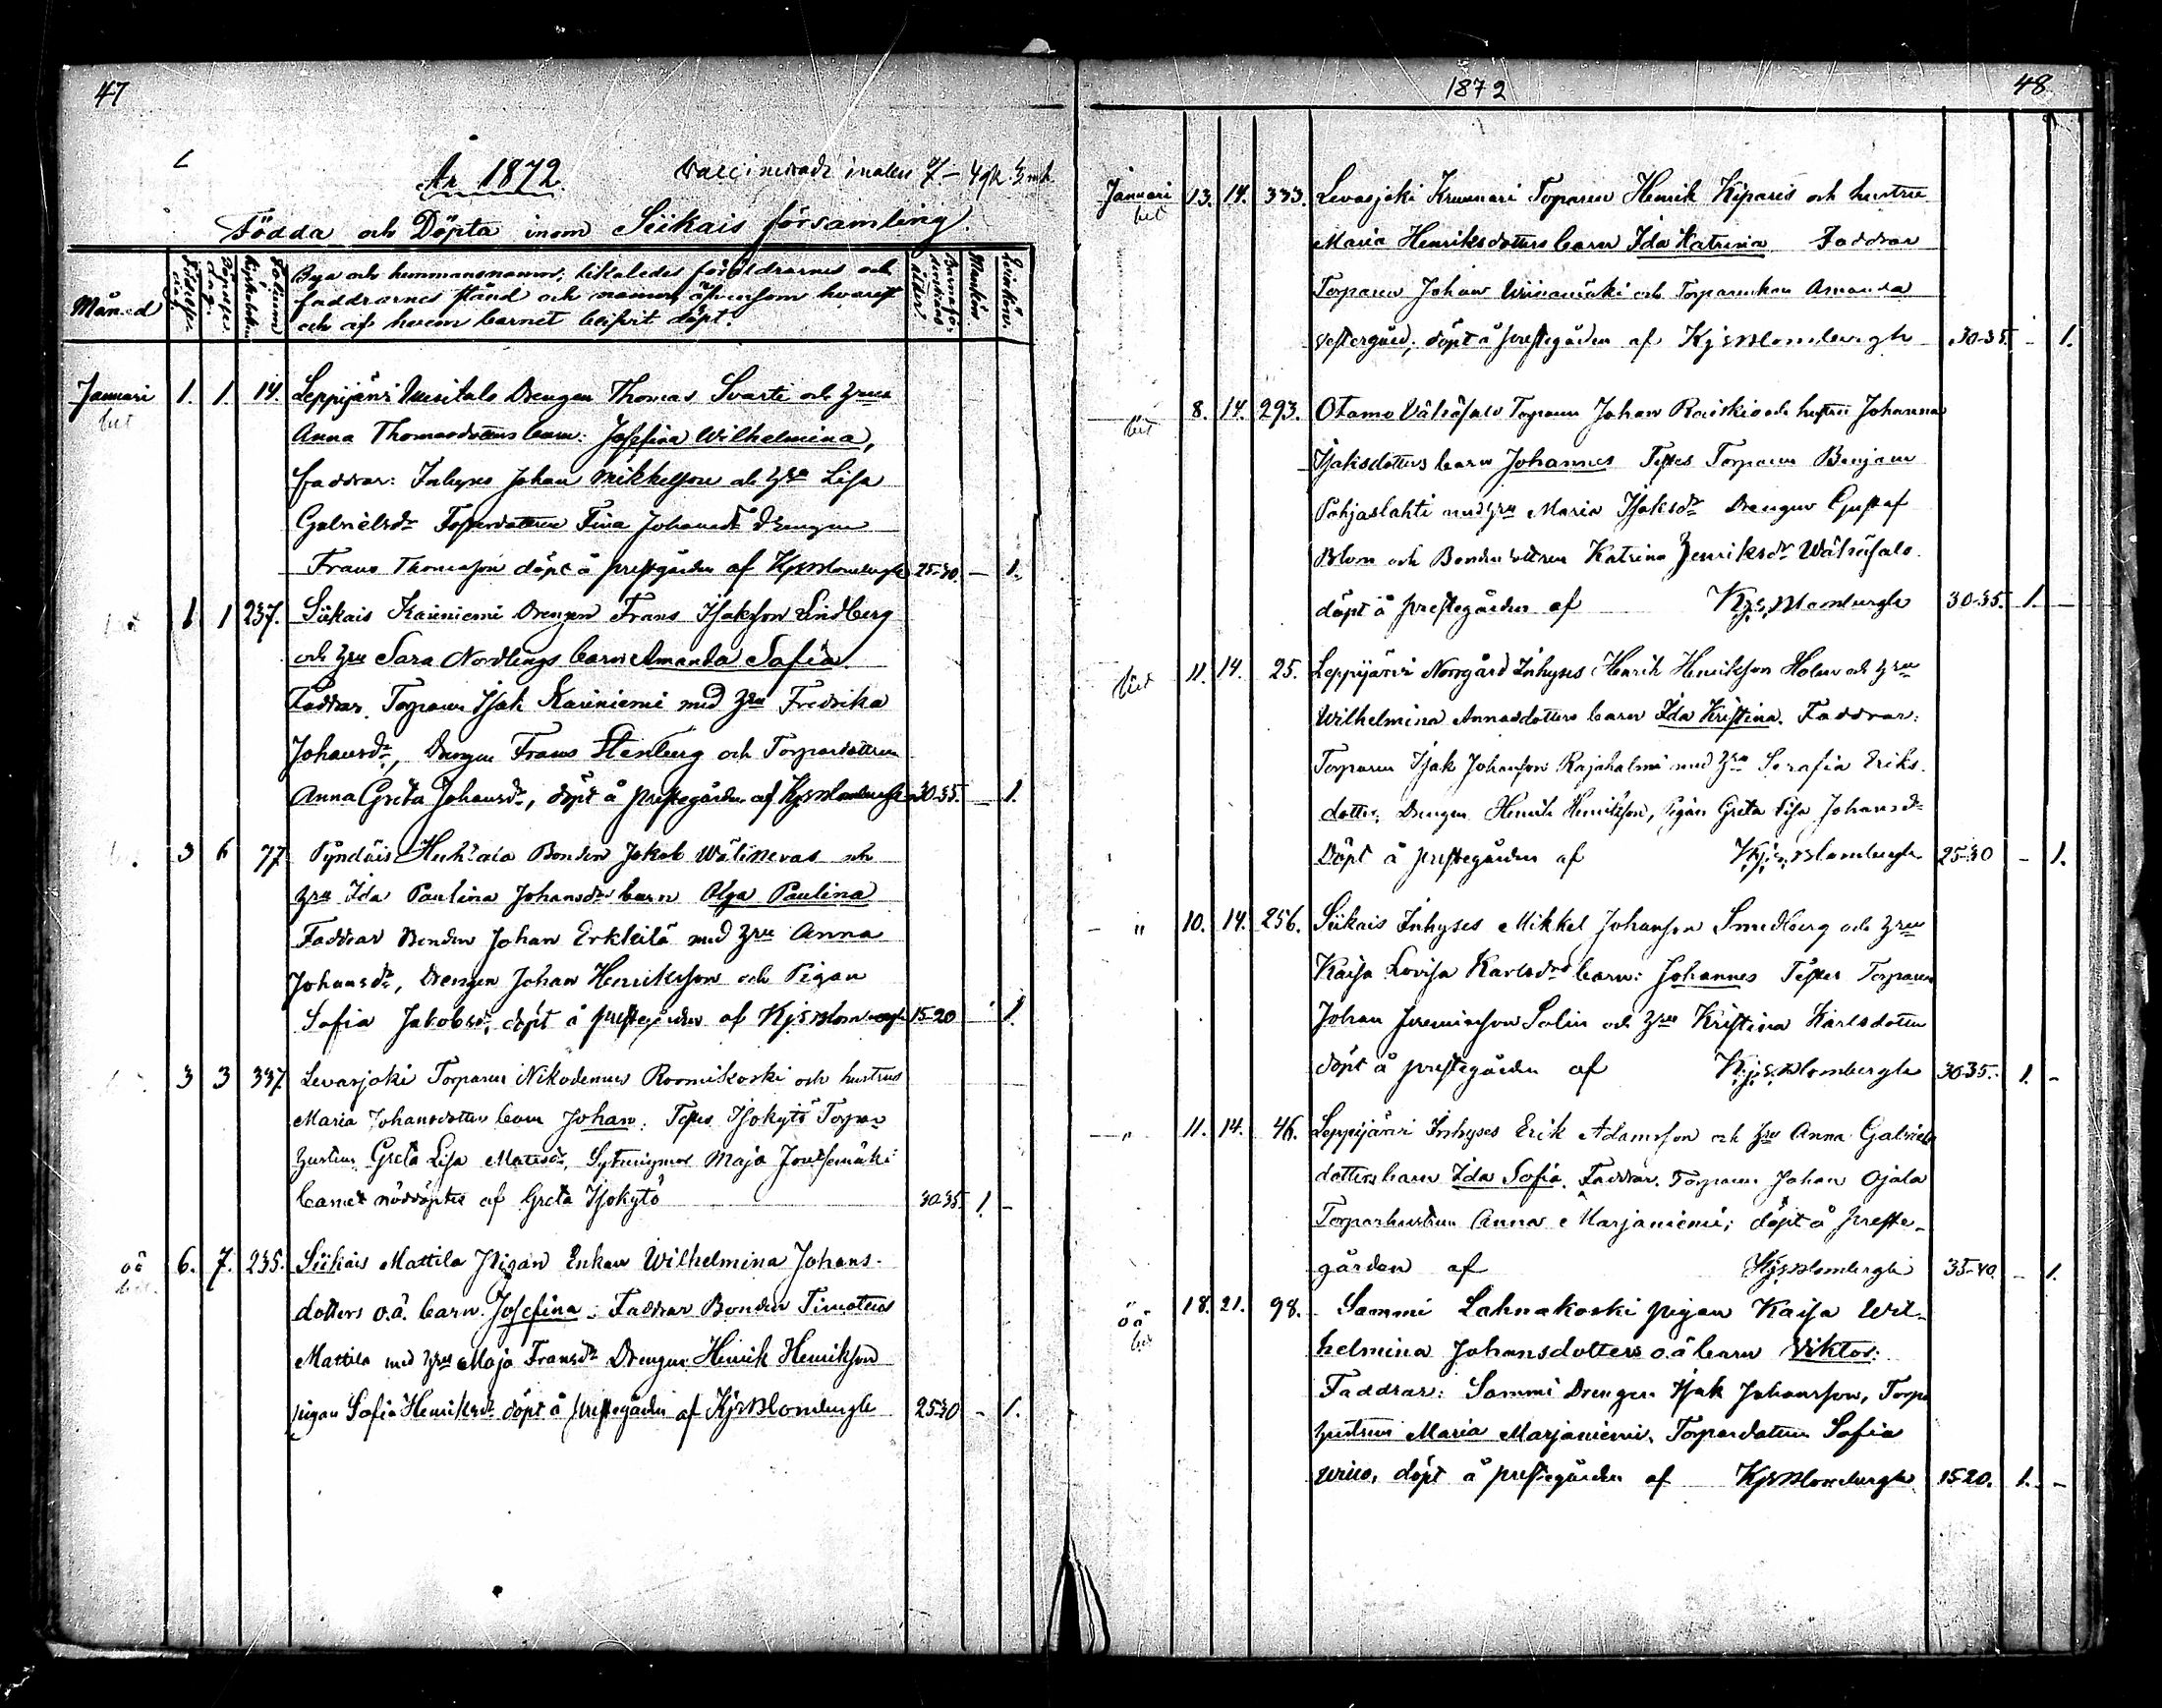 47
År 1872.
Födda och Döpta inom Siikais församling.
Månad
Födelse dag.
Döpelse dag.
Folium i Kyrkoboken
Bya och hemmansnamn, likaledes föräldrarnes och
faddrarnes stånd och namn, äfvensom hvarest
och af hvem barnet blifvit döpt.
Barnaföderskans ålder
Mankön.
Qvinkön.
Januari 1. 1. 14. Leppijärvi Uusitalo Drengen Thomas Svarti och hru
Anna Thomasdotters barn: Josefina Wilhelmina,
faddrar: Inhyses Johan Mikkelsson och hru Lisa
Gabrielsdr Torpardottren Fina Johansdr Drengen
Frans Thomasson döpt å prestgården af Kjs Blombergh 25-30 — 1.
1 1 237. Siikais Kariniemi Drengen Frans Isaksson Lindberg
och hru Sara Nordlings barn Amanda Sofia
Faddrar. Torparen Isak Kariniemi med hru Fredrika
Johansdr, Drengen Frans Stenberg och Torpardottren
Anna Greta Johansdr, döpt å prestegården af Kjs Blombergh 30-35. — 1.
3 6 77 Pyndäis Bonden Jakob och
hru Ida Paulina Johansdrs barn Olga Paulina
Faddrar Bonden Johan Erkkilä med hru Anna
Johansdr, Drengen Johan Henriksson och Pigan
Sofia Jakobsdr, döpt å prestegården af Kjs Blombergh 15-20 1.
3 3 337 Levasjoki Torparen Nikodemus Roomikoski och hustrus
Maria Johansdotters barn Johan. Testes Isokytö Torpar
hustrun Greta Lisa Mattsdr, Sytningmor Maja
barnet nöddöptes af Greta Isokytö 30-35. 1. —
oä 6. 7. 235. Siikais Mattila Pigan Enkan Wilhelmina Johans-
dotters o.ä. barn. Josefina. Faddrar Bonden Timoteus
Mattila med hru Maja Fransdr Drengen Henrik Henriksson
pigan Sofia Henriksdr döpt å prestegården af Kjs Blombergh 25-30 — 1.
1872
48
Januari 13. 14. 333. Levasjoki Krunnari Torparen Henrik Kiparis och hustru
Maria Henriksdotters barn Ida Katrina Faddrar
Torparen Johan Wiinamäki och Torparenkan Amanda
Vestergård, döpt å prestegården af Kjs Blombergh 30-35. — 1.
8. 14. 293. Otamo Vähäsalo Torparen Johan Raiskio och hustru Johanna
Isaksdotters barn Johannes Testes Torparen Benjam
Pohjaslahti med hru Maria Isaksdr Drengen Gustaf
Blom och Bondedottren Katrina Henriksdr Wähäsalo.
döpt å prestegården af Kjs. Blombergh 30-35. 1. —
11. 14. 25. Leppijärvi Norrgård Inhyses Henrik Henriksson Holm och hru
Wilhelmina Annasdotters barn Ida Kristina. Faddrar:
Torparen Isak Johansson Rajahalme med hru Serafia Eriks-
dotter, Drengen Henrik Henriksson, Pigan Greta Lisa Johansdr
Döpt å prestegården af Kjs. Blombergh 25-30 — 1.
— " 10. 14. 256. Siikais Inhyses Mikkel Johansson Smedberg och hru
Kaisa Lovisa Karlsdrs barn: Johannes Testes Torparen
Johan Jeremiasson Salin och hru Kristina Karlsdotter
döpt å prestegården af Kjs. Blombergh 30-35. 1. —
— " 11. 14. 46. Leppijärvi Inhyses Erik Adamsson och hru Anna Gabriels
dotters barn Ida Sofia. Faddrar. Torparen Johan Ojala
Torparhustrun Anna Marjaniemi; döpt å preste-
gården af Kjs Blombergh 35-40. — 1.
oä 18. 21. 98. Sammi Lahnakoski pigan Kaisa Wil-
helmina Johansdotters o.ä barn Viktor:
Faddrar: Sammi Drengen Isak Johansson, Torpar
hustrun Maria Marjaniemi, Torpardottren Sofia
döpt å prestegården af Kjs Blombergh 15-20. 1. —